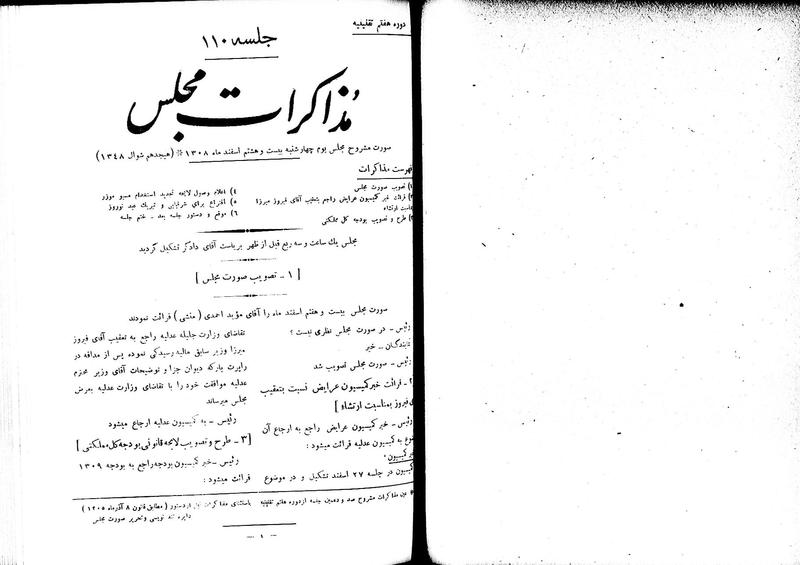 دوره هفتم تقنینیه
جلسه ۱۱۰
مذاکرات مجلس
صورت مشروح مجلس یوم چهارشنبه بیست و هشتم اسفند ماه ۱۳۰۸ * (هیجدهم شوال ۱۳۴۸)
فهرست مذاکرات
۱) تصویب صورت مجلس
۲) قرائت خبر کمیسیون عرایض راجع بتعقیب آقای فیروز میرزا
بمناسبت ارتشاء
۳) طرح و تصویب بودجه کل مملکتی
۴) اعلام وصول لایحه تجدید استخدام مسیو موزر
۵) اقتراع برای شرفیابی و تبریک عید نوروز
۶) موقع و دستور جلسه بعد - ختم جلسه
مجلس یک ساعت و سه ربع قبل از ظهر بریاست آقای دادگر تشکیل گردید
[ ۱ - تصویب صورت مجلس ]
صورت مجلس بیست و هفتم اسفند ماه را آقای مؤید احمدی (منشی) قرائت نمودند
رئیس - در صورت مجلس نظری نیست؟
نمایندگان - خیر
رئیس - صورت مجلس تصویب شد
۲ - قرائت خبر کمیسیون عرایض نسبت بتعقیب
فیروز بمناسبت ارتشاء ]
رئیس - خبر کمیسیون عرایض راجع به ارجاع آن
موضوع به کمیسیون عدلیه قرائت میشود:
خبر کمیسیون:
کمیسیون در جلسه ۲۷ اسفند تشکیل و در موضوع
تقاضای وزارت جلیله عدلیه راجع به تعقیب آقای فیروز
میرزا وزیر سابق مالیه رسیدگی نموده پس از مداقه در
راپرت پارکه دیوان جزا و توضیحات آقای وزیر محترم
عدلیه موافقت خود را با تقاضای وزارت عدلیه بعرض
مجلس میرساند
رئیس - به کمیسیون عدلیه ارجاع میشود
[ ۳ - طرح و تصویب لایحه قانونی بودجه کل مملکتی ]
رئیس - خبر کمیسیون بودجه راجع به بودجه ۱۳۰۹
قرائت میشود:
* عین مذاکرات مشروح صد و دهمین جلسه از دوره هفتم تقنینیه باستثنای مذاکرات قبل از دستور (مطابق قانون ۸ آذرماه ۱۳۰۵)
دایره تند نویسی و تحریر صورت مجلس
— ۱ —